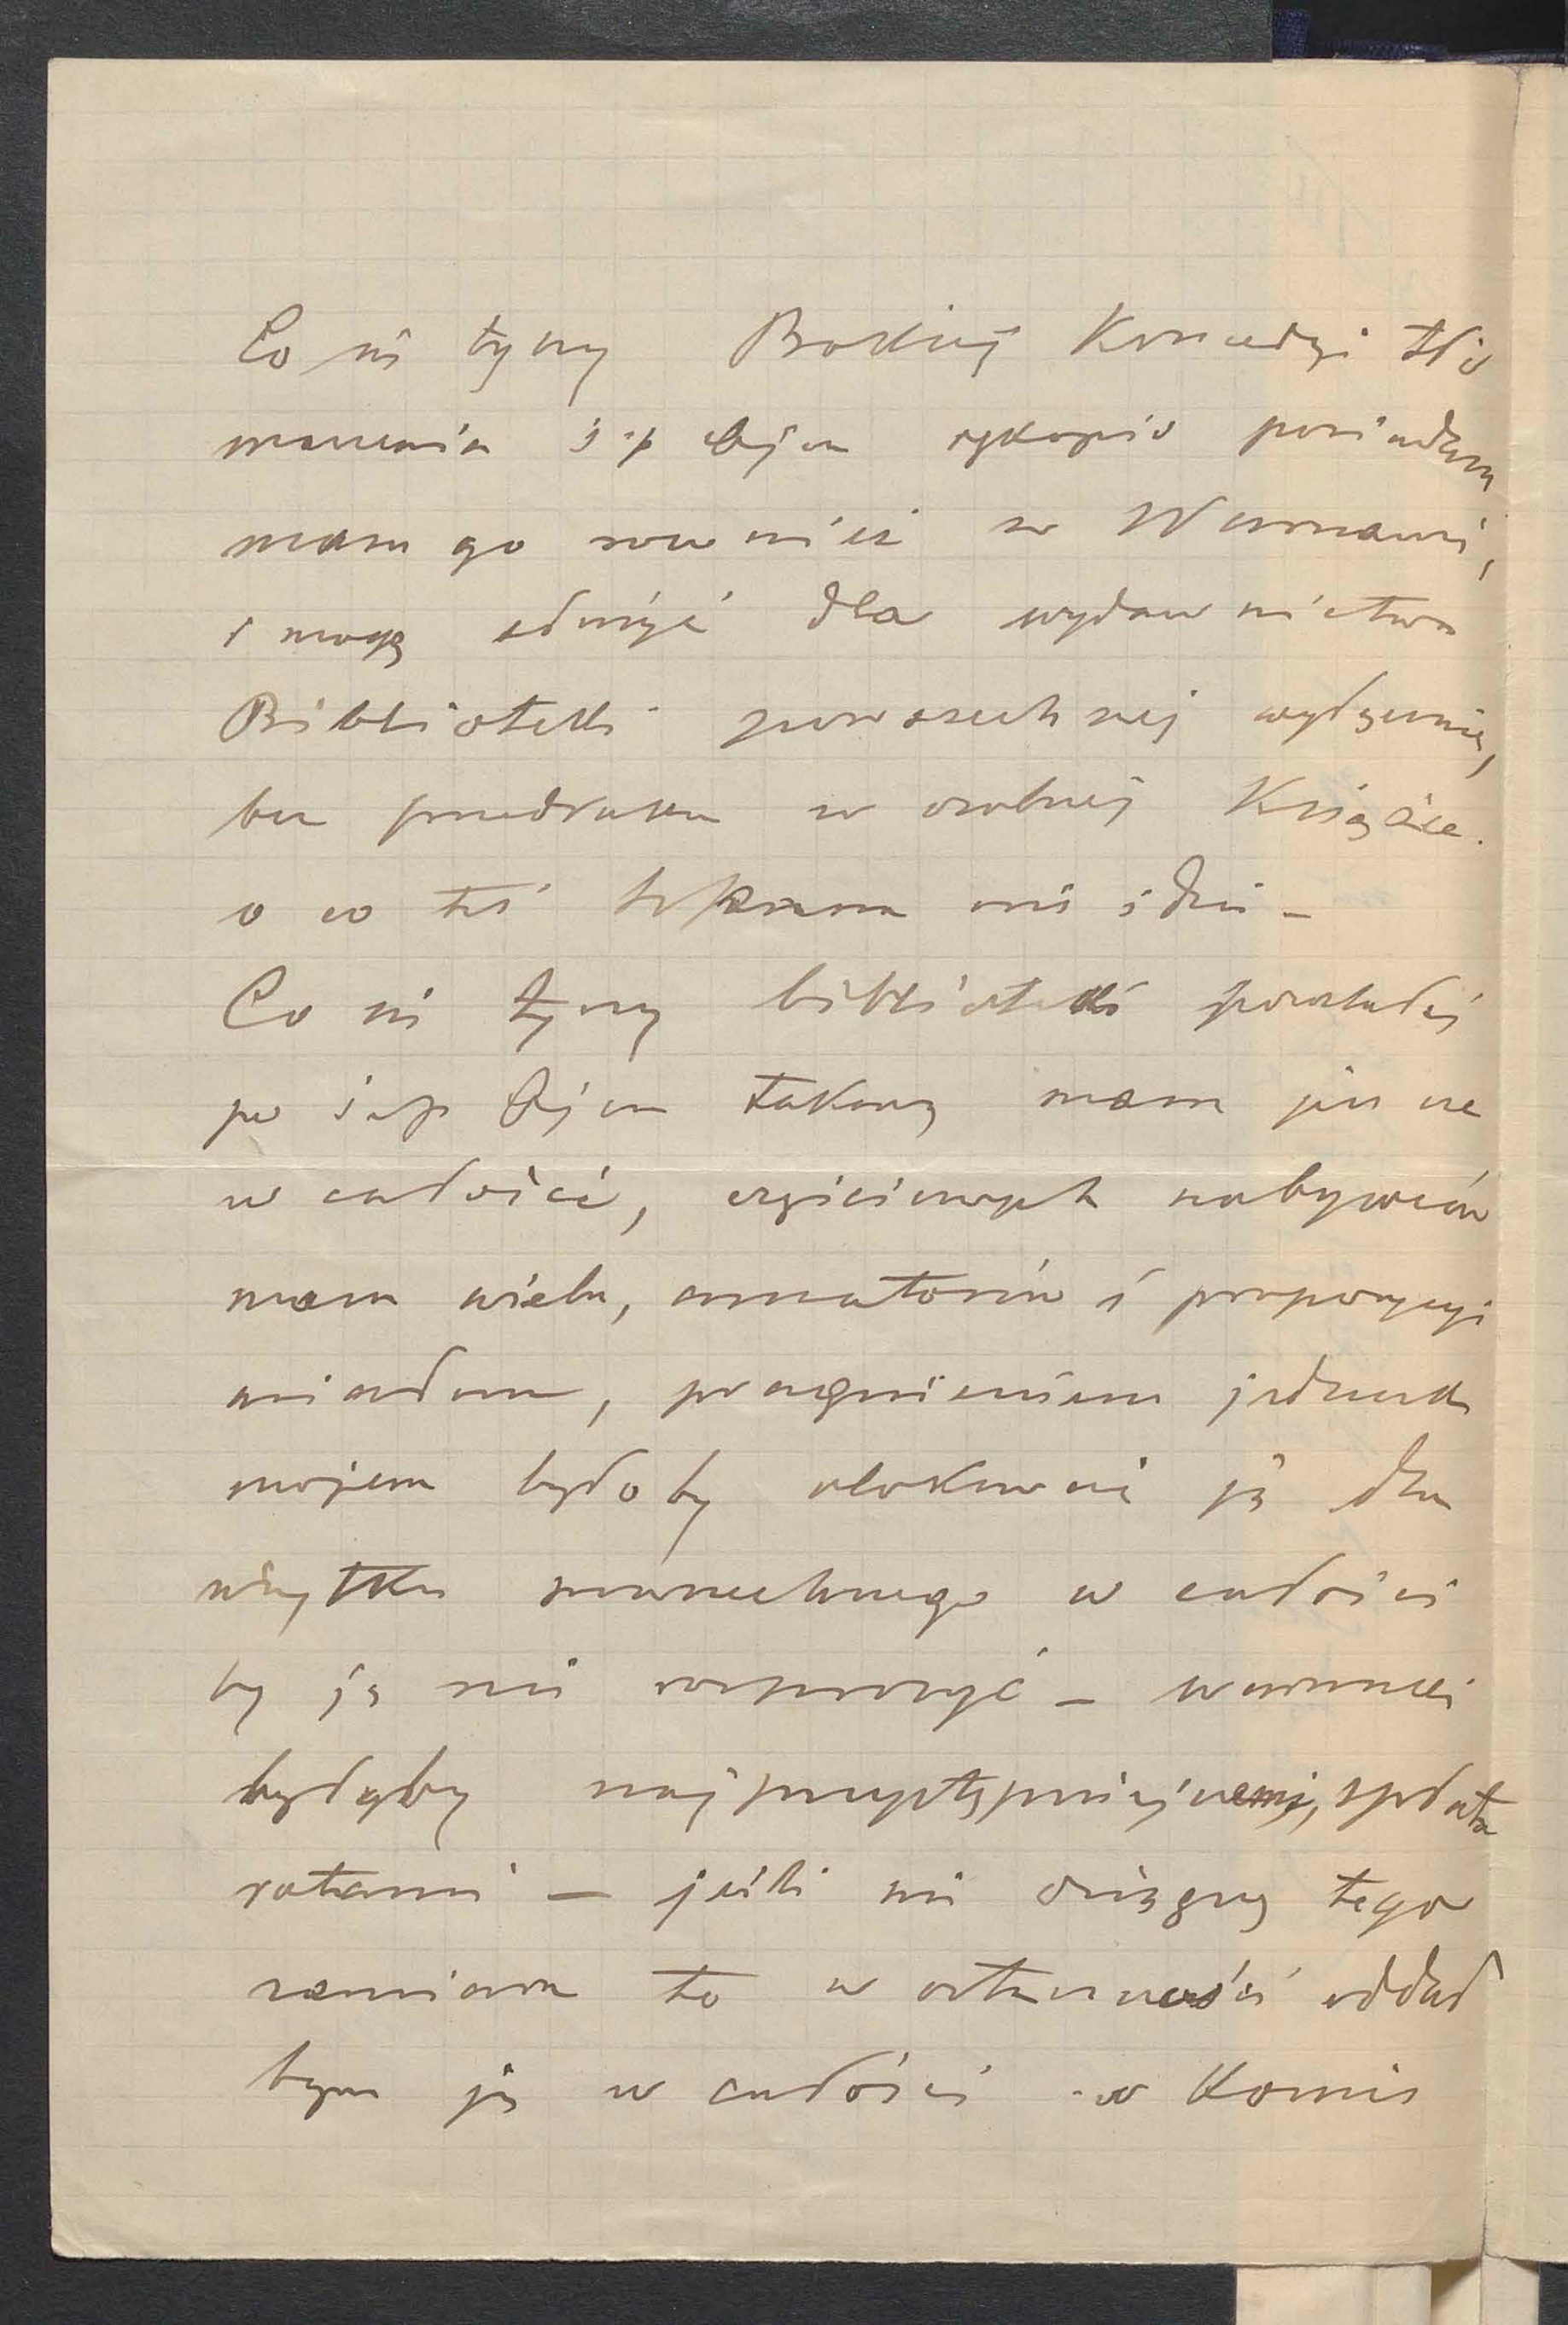 Co się tyczy Boskiej Komedyi tłó
maczenia ś. p. Ojca rękopis posiadam
mam go również w Warszawie,
i mogę udzielić dla wydawnictwa
Biblioteki powszechnej wyłącznie,
bez przedruku w osobnej Książce.
o co też tylko mi idzie –
Co się tyczy biblioteki pozostałej
po ś. p. Ojcu takową mam jeszcze
w całości, częściowych nabywców
mam wielu, amatorów i propozycyi
miałem, pragnieniem jednak
mojem byłoby ulokować ją dla
użytku powszechnego w całości
by ją nie rozproszyć – warunki
byłyby najprzystępniejszemi, spłata
ratami – jeśli nie osiągnę tego
zamiaru to w ostateczności oddał
bym ją w całości w Komis